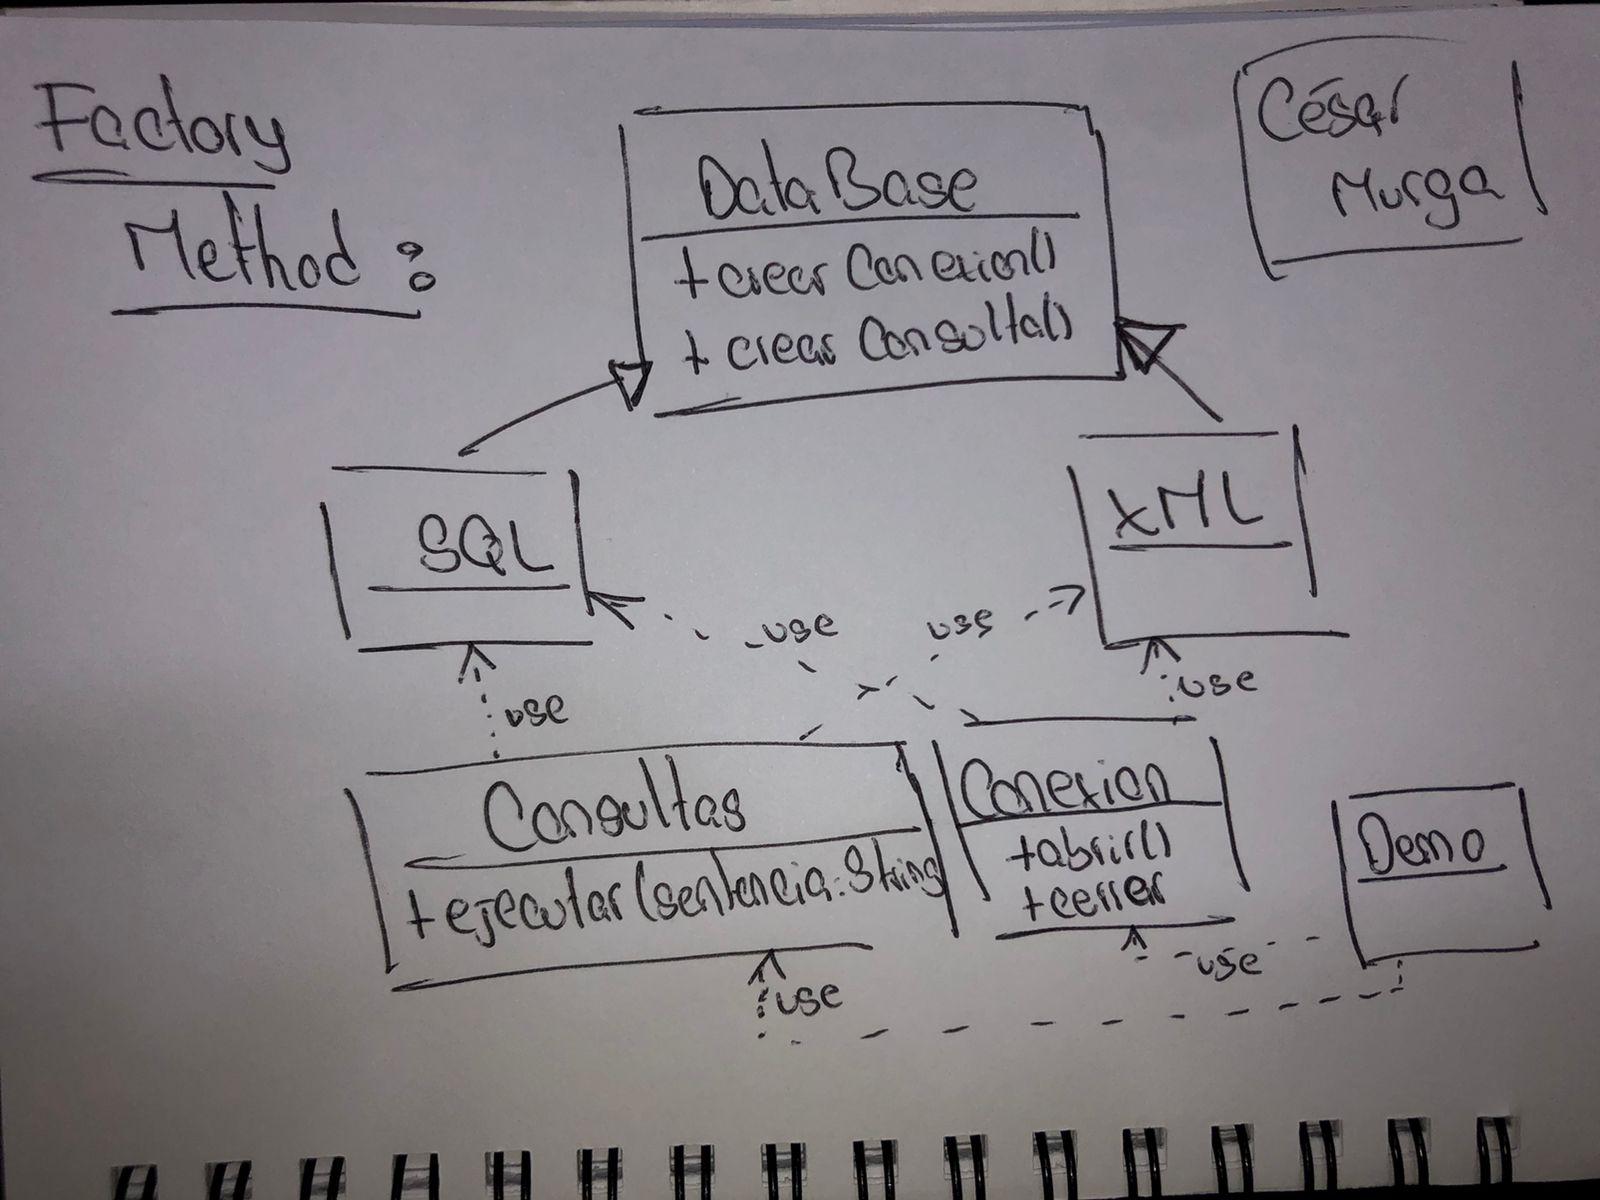 Factory
Method :
César
Murga
DataBase
+ crear Conexion()
+ crear Consulta()
SQL
XML
use
use
use
use
Consultas
+ ejecutar (sentencia: String
Conexion
+ abrir()
+ cerrar
Demo
use
use